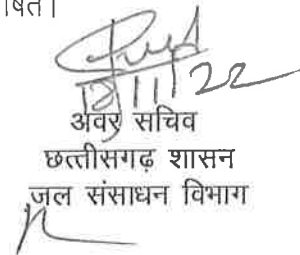 षित।
18/11/22
अवर सचिव
छत्तीसगढ़ शासन
जल संसाधन विभाग